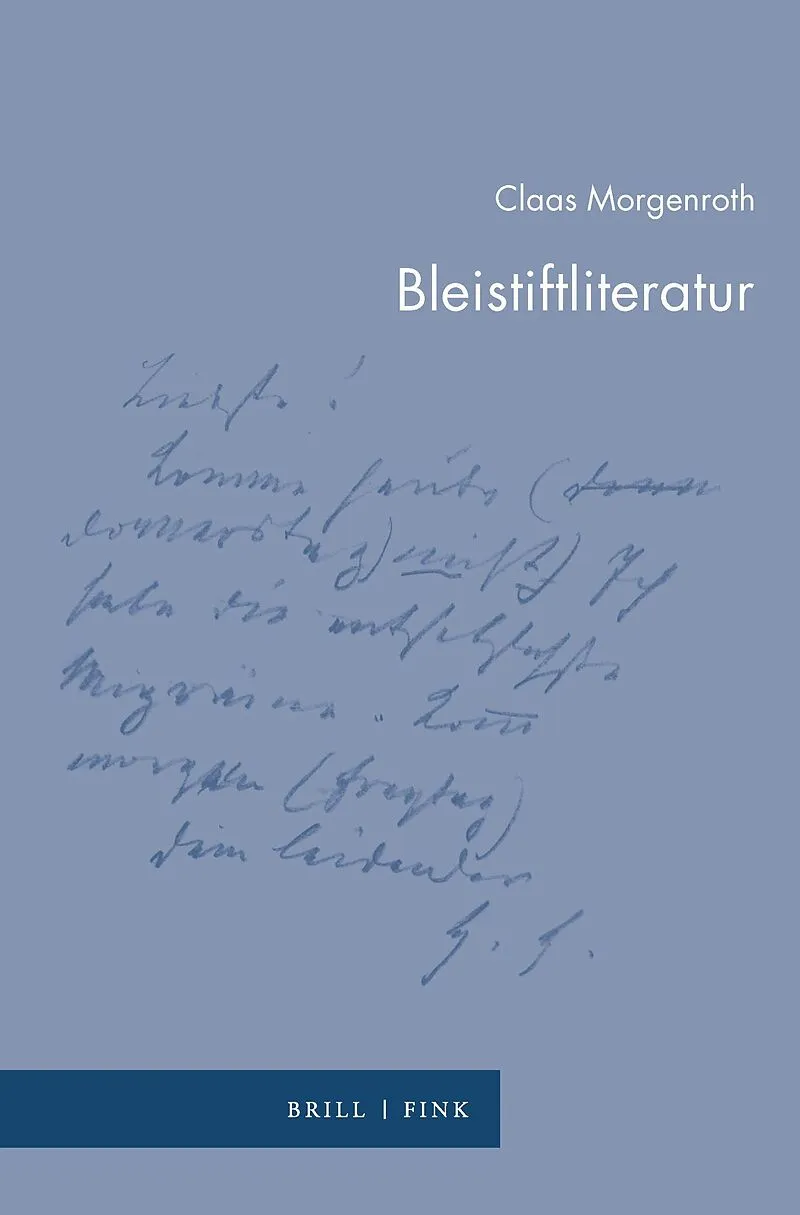 Claas Morgenroth
Bleistiftliteratur
Liebste!
Komme heute (
donnerstag) nicht) Ich
habe die entsetzlichste
Migräne. Komm
morgen (freytag)
dein leidender
BRILL | FINK